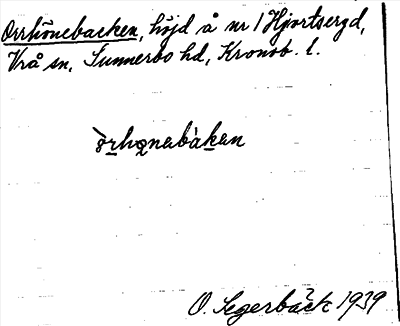 Orrhönebacken, höjd å nr 1 Hjortseryd,
Vrå sn, Sunnerbo hd, Kronob. l.
òrhønabàkan
O. Segerbäck 1939